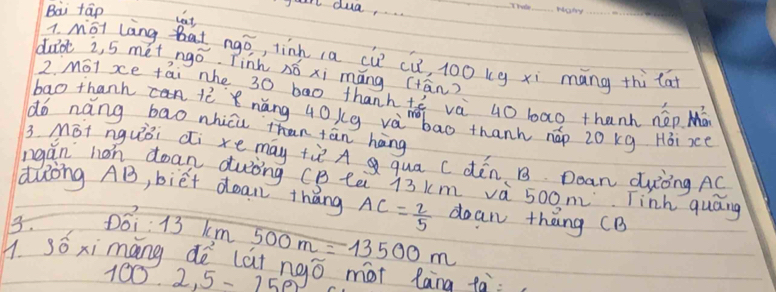 dua, ...
Thứ Ngày
Bài tập
1. Một làng lát ngõ, tính ra cứ cứ, 100 kg xi măng thì lát
được 2,5 mét ngõ. Tính số xi măng (tấn)
2. Một xe tải nhẹ 30 bao thanh tẻ và 40 bao thanh nếp. Mỗi
bao thanh tẻ nặng 40 kg và mỗi bao thanh nếp 20 kg Hỏi xe
đó nặng bao nhiêu tấn hàng
3. Một người đi xe máy từ A qua C đến B. Đoạn đường AC
ngắn hơn đoạn đường CB là 13 km và 500 m. Tính quãng
đường AB, biết đoạn thẳng AC = 2/5 đoạn thẳng CB
3. Đổi: 13 km 500 m = 13500 m
1. Số xi măng để lát ngõ một làng là:
100. 2,5 - 250